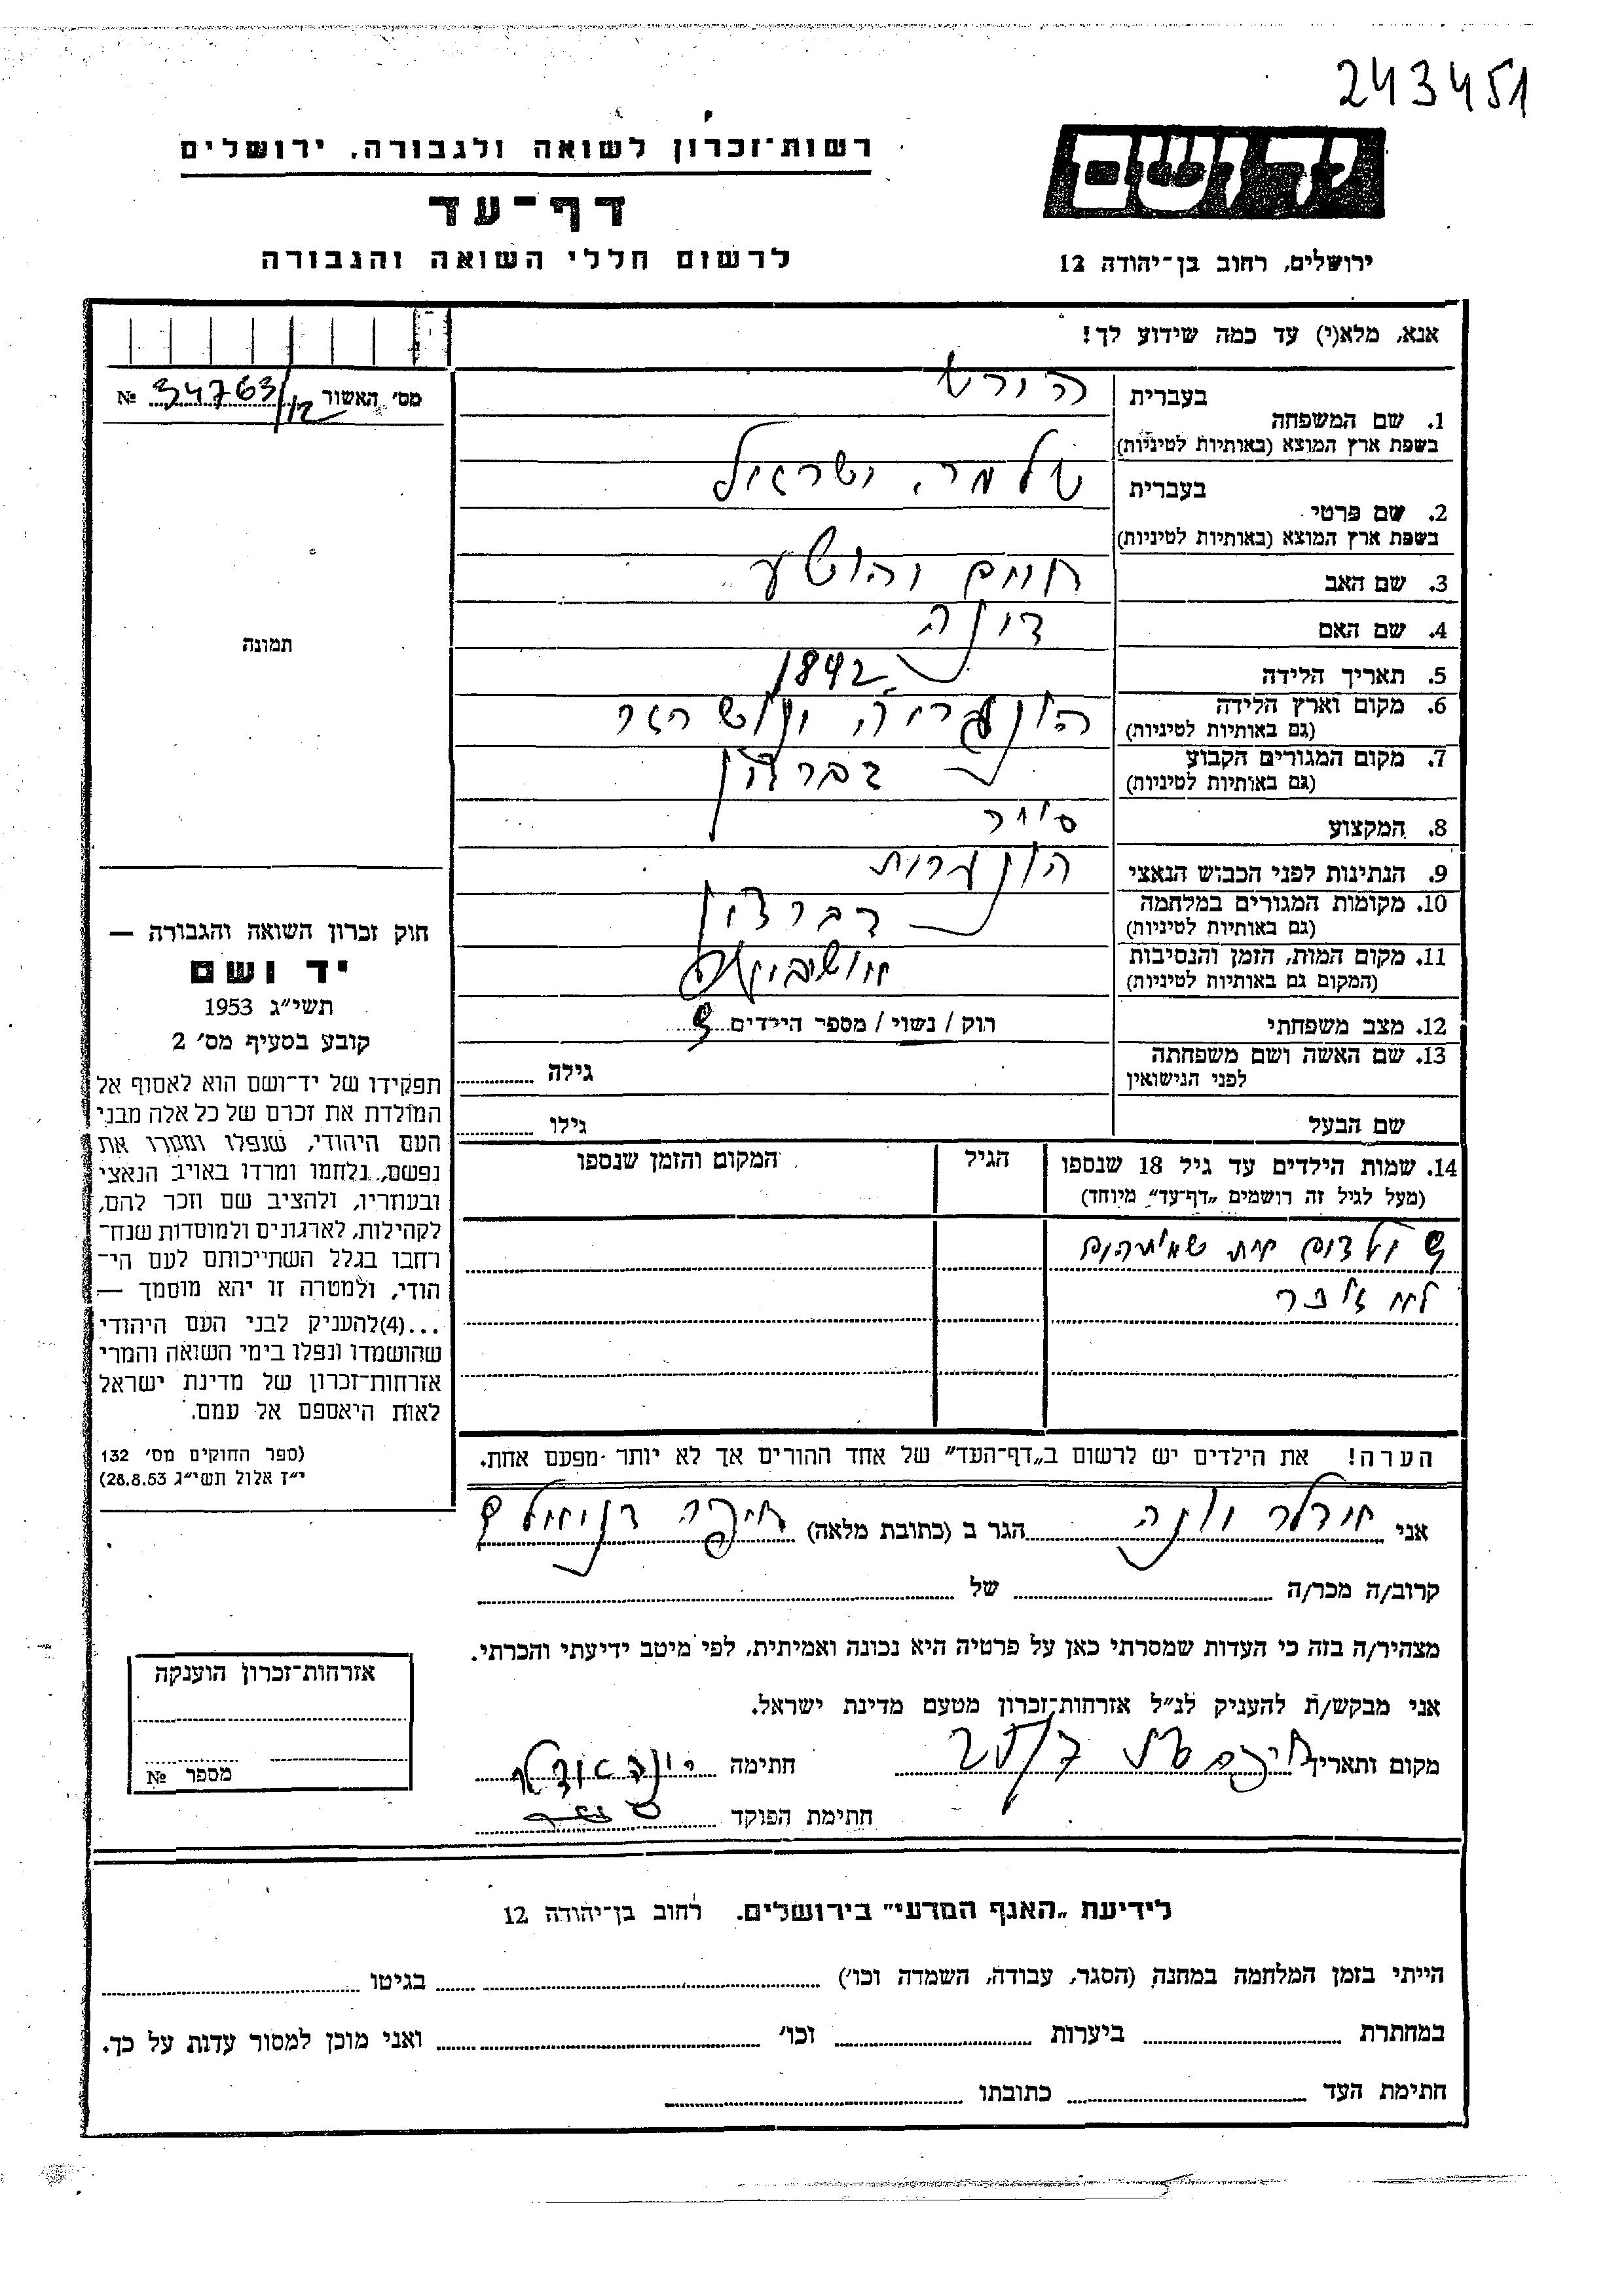 243451
יד ושם
ירושלים, רחוב בן־יהודה 12
רשות־זכרון לשואה ולגבורה, ירושלים
דף־עד
לרשום חללי השואה והגבורה
אנא, מלא(י) עד כמה שידוע לך!
מס׳ האשור 34763/12 №
1. שם המשפחה
בעברית הורט
בשפת ארץ המוצא (באותיות לטיניות)
2. שם פרטי
בעברית שלמה ישראל
בשפת ארץ המוצא (באותיות לטיניות)
3. שם האב חיים יהושע
4. שם האם
5. תאריך הלידה 1892
6. מקום וארץ הלידה הונגריה
(גם באותיות לטיניות)
7. מקום המגורים הקבוע דברצין
(גם באותיות לטיניות)
8. המקצוע סוחר
9. הנתינות לפני הכבוש הנאצי הונגרית
10. מקומות המגורים במלחמה דברצין
(גם באותיות לטיניות)
11. מקום המות, הזמן והנסיבות אושביץ
(המקום גם באותיות לטיניות)
12. מצב משפחתי רוק / נשוי / מספר הילדים
13. שם האשה ושם משפחתה
לפני הנישואין
גילה
שם הבעל
גילו
תמונה
חוק זכרון השואה והגבורה —
יד ושם
תשי״ג 1953
קובע בסעיף מס׳ 2
תפקידו של יד־ושם הוא לאסוף אל
המולדת את זכרם של כל אלה מבני
העם היהודי, שנפלו ומסרו את
נפשם, נלחמו ומרדו באויב הנאצי
ובעוזריו, ולהציב שם וזכר להם,
לקהילות, לארגונים ולמוסדות שנח־
רחבו בגלל השתייכותם לעם הי־
הודי, ולמטרה זו יהא מוסמך —
...(4)להעניק לבני העם היהודי
שהושמדו ונפלו בימי השואה והמרי
אזרחות־זכרון של מדינת ישראל
לאות היאספם אל עמם.
(ספר החוקים מס׳ 132
י״ז אלול תשי״ג 28.8.53)
14. שמות הילדים עד גיל 18 שנספו
(מעל לגיל זה רושמים „דף־עד״ מיוחד)
הגיל
המקום והזמן שנספו
ילדים את שמותיהם
לא זוכר
הערה! את הילדים יש לרשום ב„דף־העד״ של אחד ההורים אך לא יותר מפעם אחת.
אני אדלר יונה הגר ב (כתובת מלאה) חיפה דניאל
קרוב/ה מכר/ה של
מצהיר/ה בזה כי העדות שמסרתי כאן על פרטיה היא נכונה ואמיתית, לפי מיטב ידיעתי והכרתי.
אני מבקש/ת להעניק לנ״ל אזרחות־זכרון מטעם מדינת ישראל.
מקום ותאריך חתימה יונה אדלר
חתימת הפוקד
אזרחות־זכרון הוענקה
מספר №
לידיעת „האגף המדעי״ בירושלים. רחוב בן־יהודה 12
הייתי בזמן המלחמה במחנה (הסגר, עבודה, השמדה וכו׳) בגיטו
במחתרת ביערות וכו׳ ואני מוכן למסור עדות על כך.
חתימת העד כתובתו